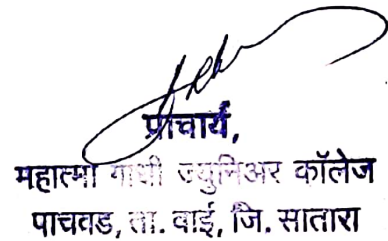 प्राचार्य,
महात्मा गांधी ज्युनिअर कॉलेज
पाचवड, ता. वाई, जि. सातारा